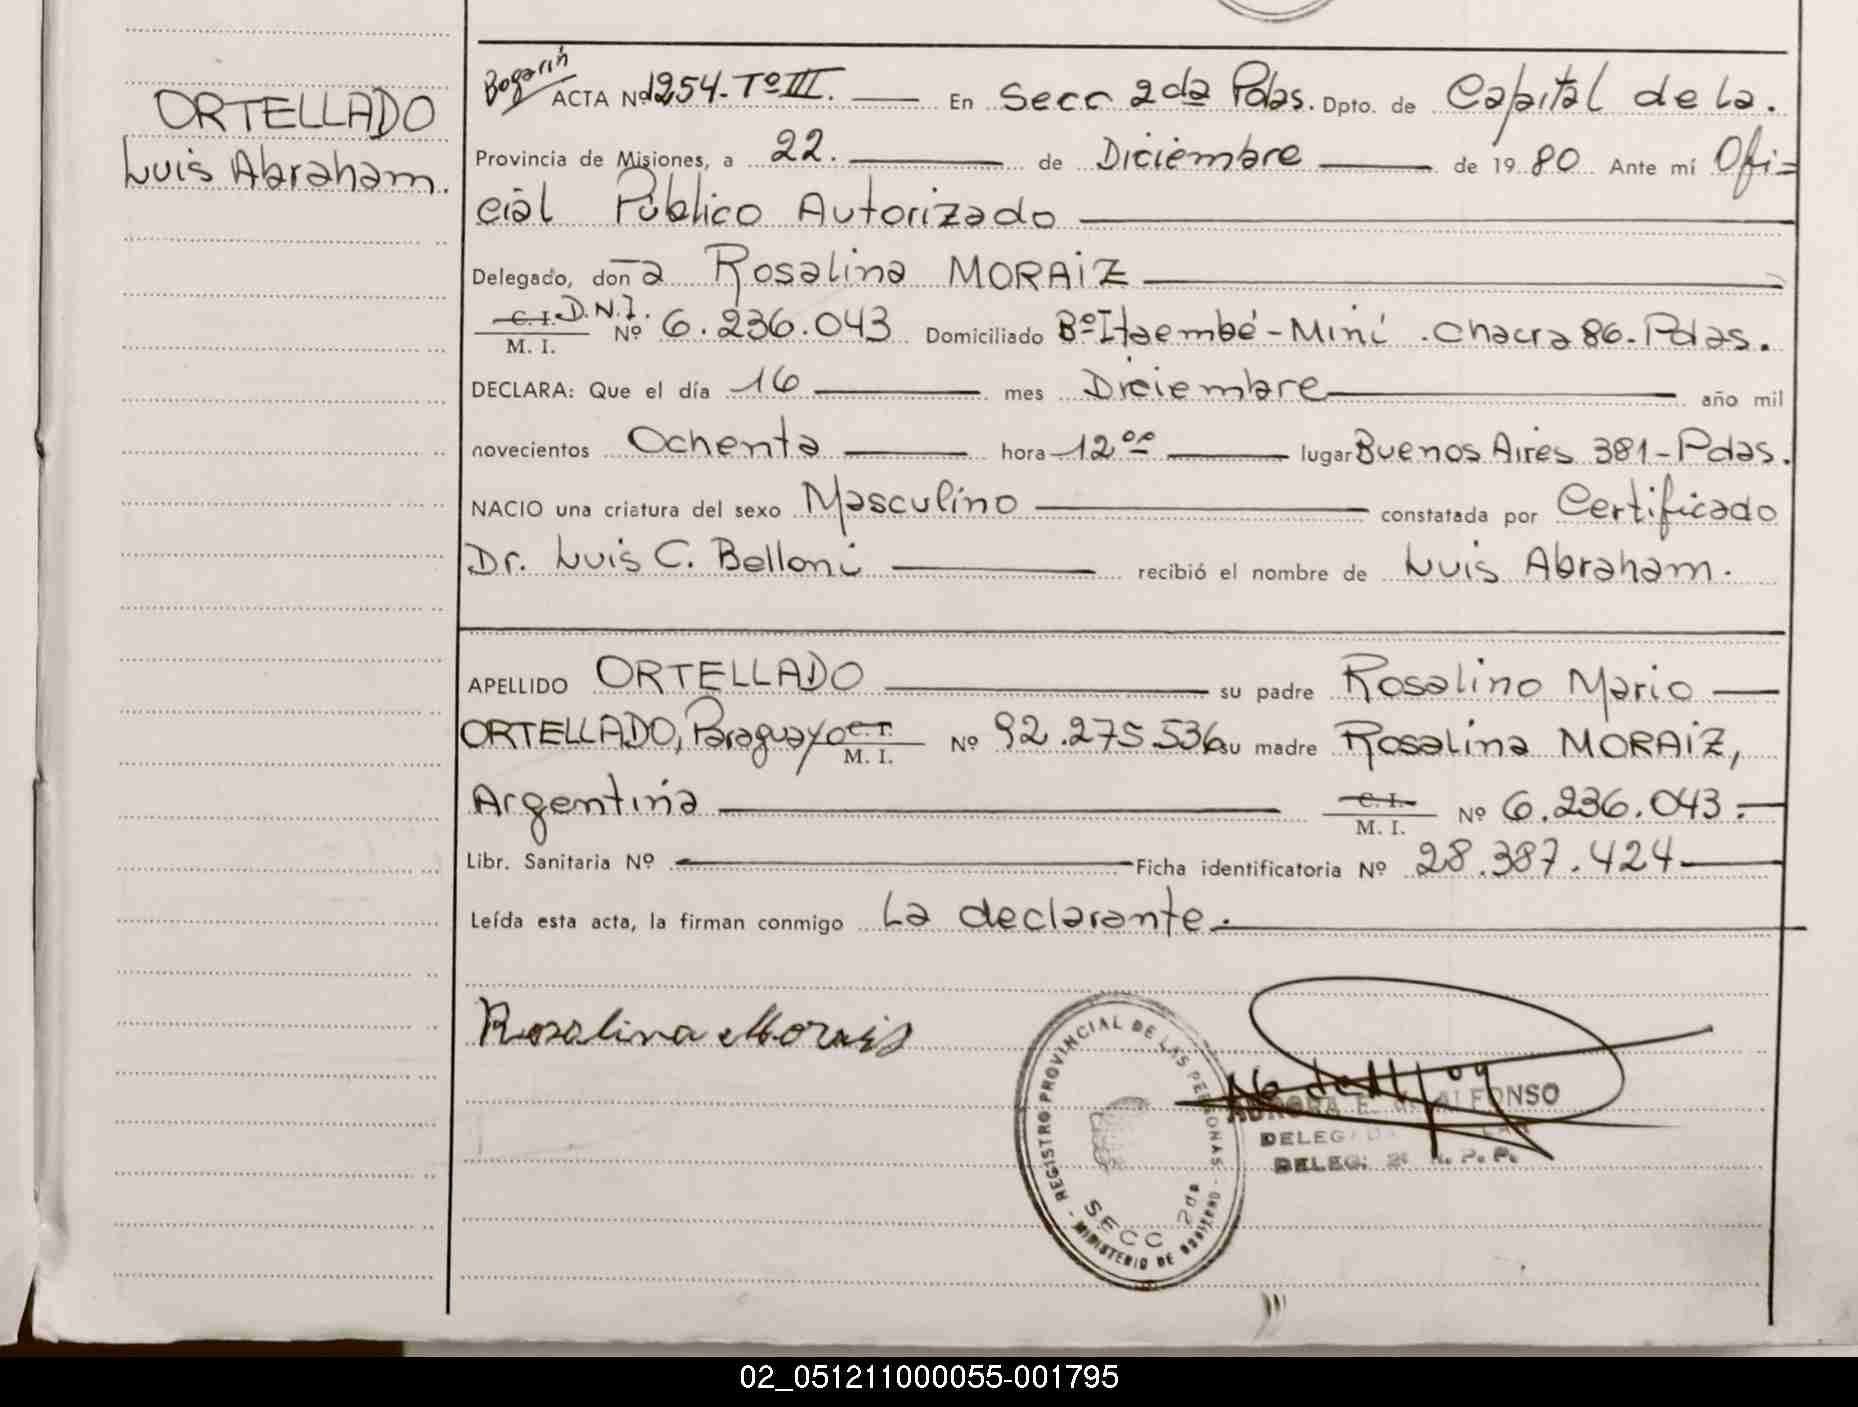 ORTELLADO
Luis Abraham.
Bogarin
ACTA Nº 1254. Tº III. En Secc 2da Pdas. Dpto. de Capital de la.
Provincia de Misiones, a 22. de Diciembre de 19 80 Ante mí Ofi=
cial Público Autorizado
Delegado, don̄a Rosalina MORAiZ
C. I. D.N.I.
M. I. Nº 6.236.043 Domiciliado Bº Itaembé-Miní .chacra 86.-Pdas.
DECLARA: Que el día 16 mes Diciembre año mil
novecientos Ochenta hora 12 ºº lugar Buenos Aires 381-Pdas.
NACIO una criatura del sexo Masculino constatada por Certificado
Dr. Luis C. Belloni recibió el nombre de Luis Abraham.
APELLIDO ORTELLADO su padre Rosalino Mario
ORTELLADO, Paraguayo C. I. M. I. Nº 92.275.536 su madre Rosalina MORAiZ,
Argentina C. I. M. I. Nº 6.236.043.
Libr. Sanitaria Nº Ficha identificatoria Nº 28.387.424
Leída esta acta, la firman conmigo La declarante.
Rosalina Morais
REGISTRO PROVINCIAL DE LAS PERSONAS
- MINISTERIO DE GOBIERNO -
SECC 2da
AURORA E. ALFONSO
DELEG
DELEG: 2ª R. P. P.
02_051211000055-001795